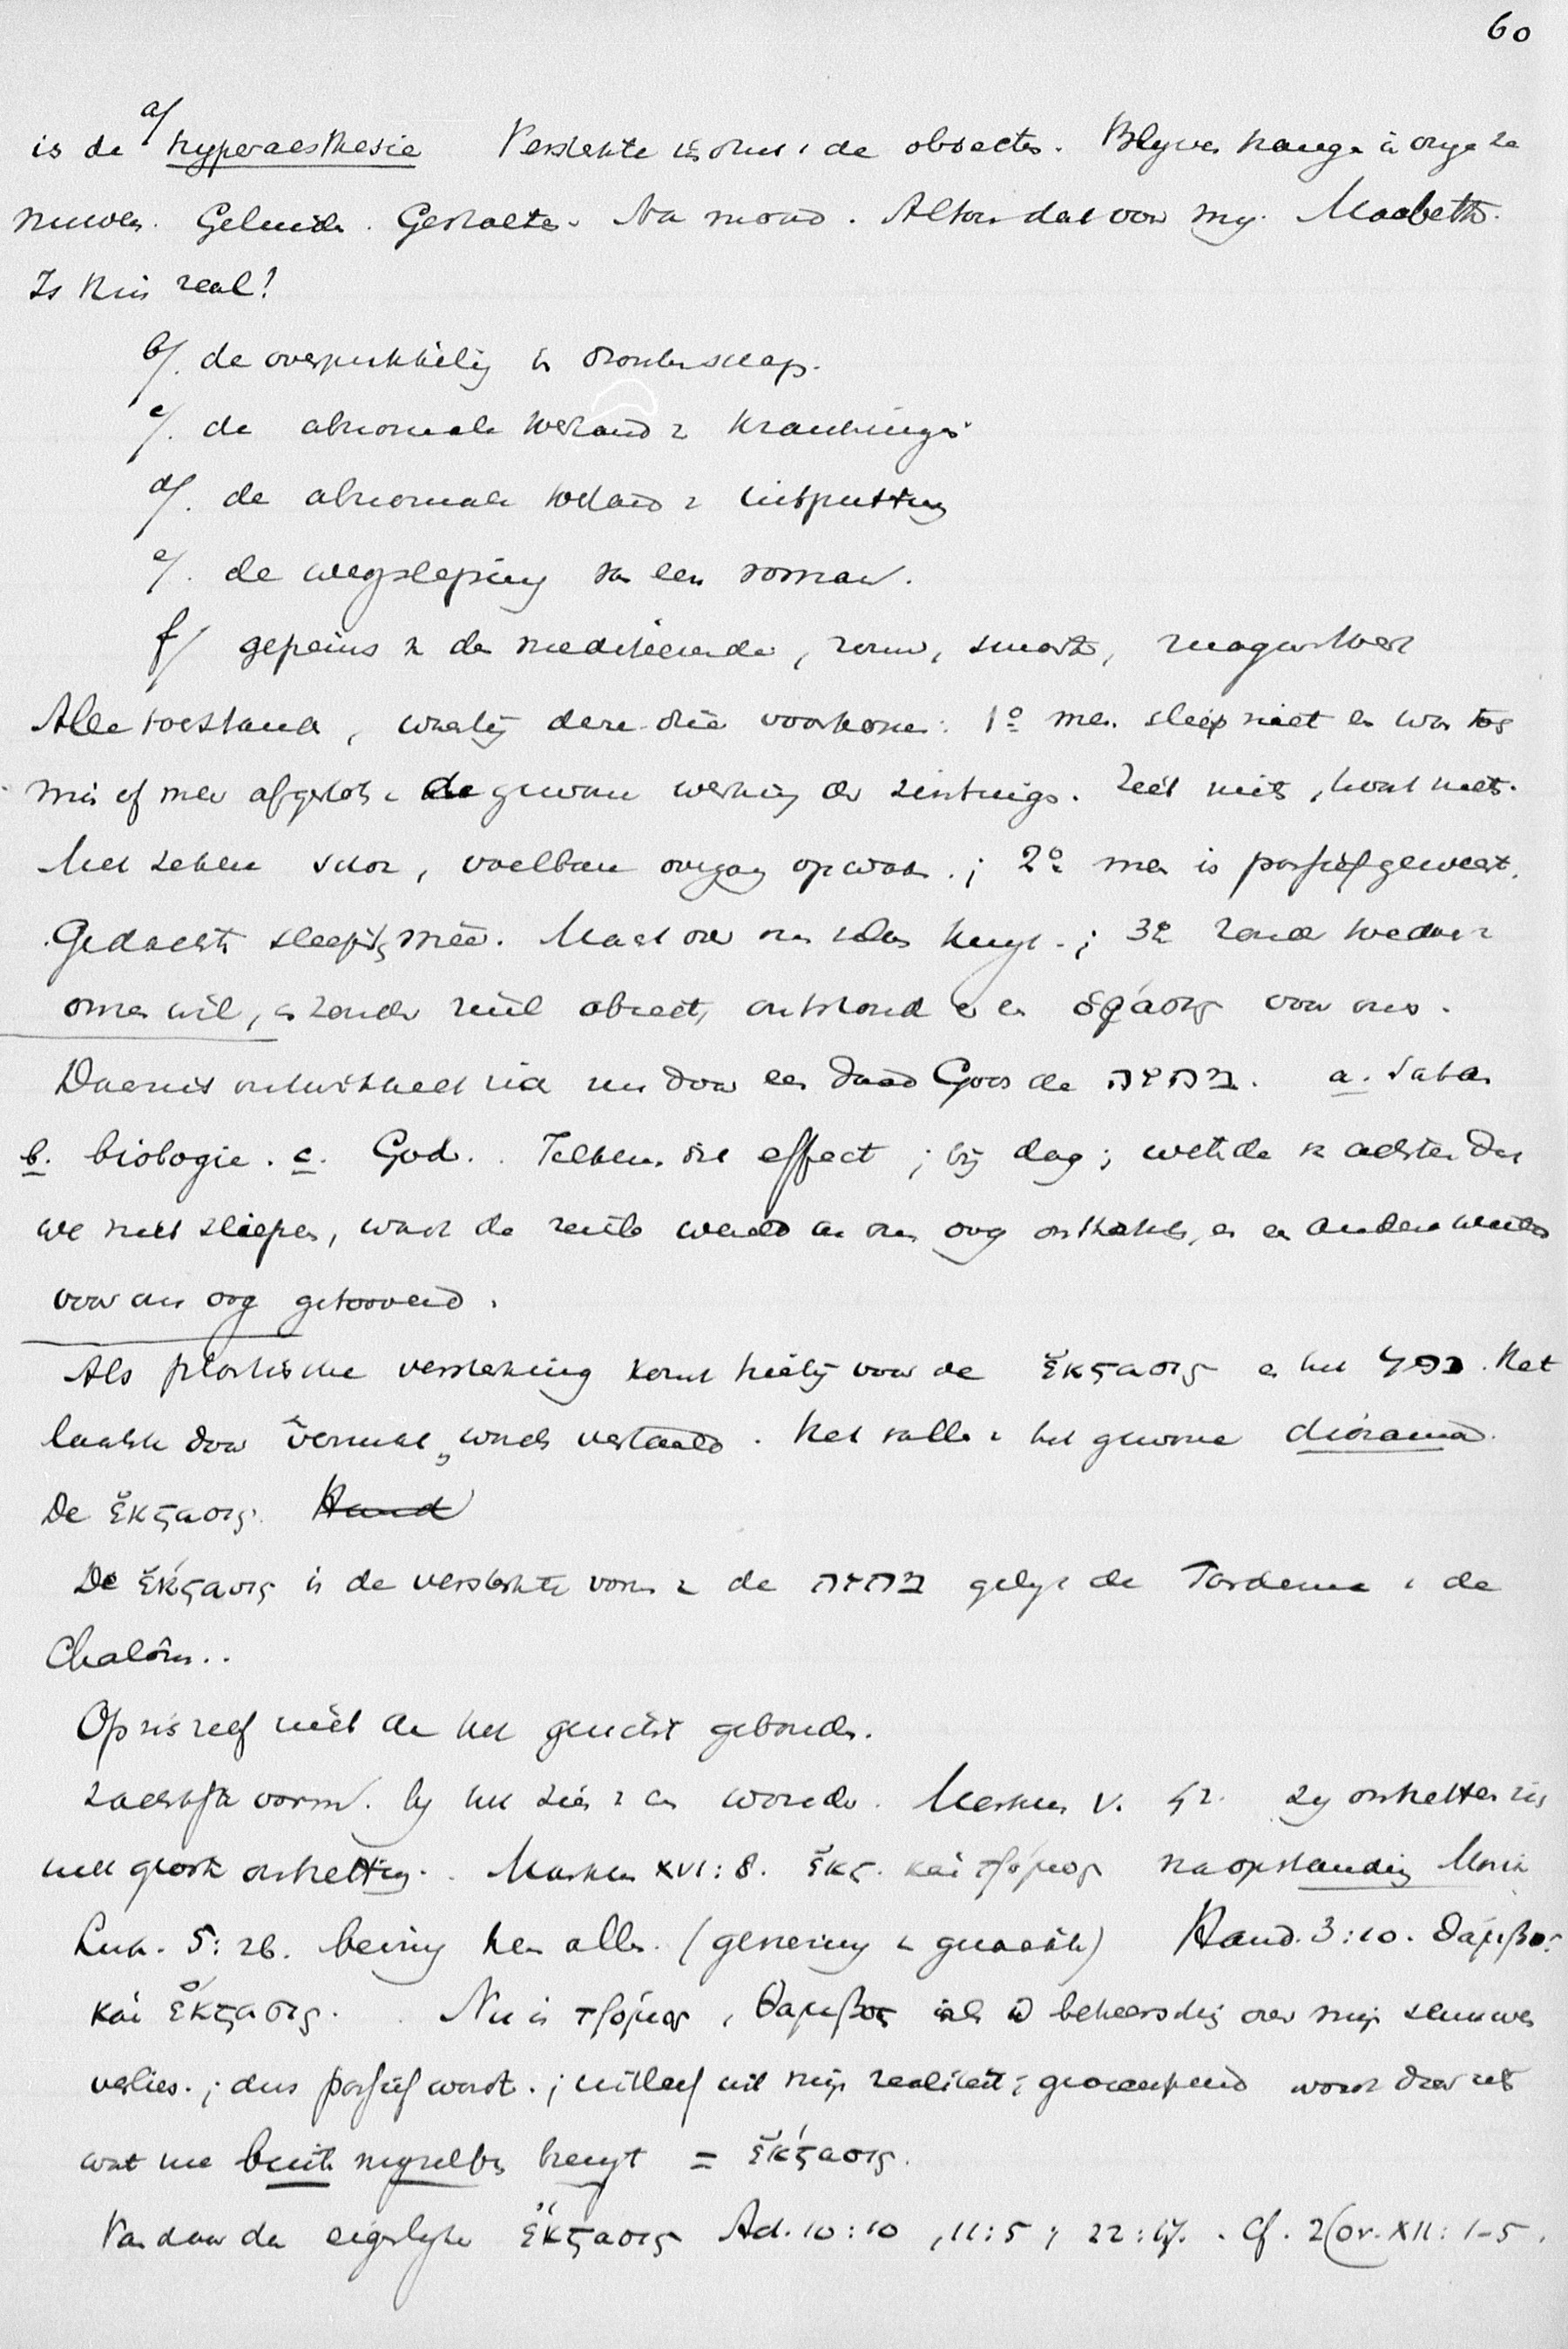 60
is de a/ hyperaesthesie Versterkte indruk de objecten. Blijven hange in onze ze
nuwen. Geluide. Gestalte. Na moord. Macbeth.
Is this real!
b/. de overprikkeling dronkenschap.
c/. de abnormale toestand v krankzinnige
d/. de abnormale toestand v uitputting
e/. de wegsleping van een roman.
f/ gepeins v de mediteerende, rouw, smart,
Alle toestand, waarbij deze drie voorkome: 1º men sliep niet en was tog
min of meer afgeslote de gewone werking der zintuige. Ziet niets, hoort niets.
Met zekere schok, voelbare overgang op waken.; 2º men is passief geweest.
Gedachte sleepte mee. ; 3º zonder toedoen
onzer wil, en zonder reëel object, ontstond er een ὅρασις voor ons.
Daaruit ontwikkelt zich nu door een daad Gods de מחזה. a. Satan
b. biologie. c. God. Telkens dit effect; bij dag; wetende achter dat
we niet sliepen, wordt de reëele wereld aan ons oog onttrokken, en een andere wereld
voor ons oog getooverd.
Als plastische versterking komt hierbij voor de ἔκστασις en het נפל. Het
laatste door verrukt wordt vertaald. Het valle v het gewone diorama.
De ἔκστασις. Hand
De ἔκστασις is de versterkte vorm v de מחזה gelijk de Tardema v de
Chalôm..
Op zich zelf niet aan het gezicht gebonde.
Zachtste vorm. bij het zien v een wonder. Markus V. 42. zij ontzetten zich
met groote ontzetting. Markus XVI: 8. ἔκσ. καὶ τρόμος na opstanding Maria
Luk. 5: 26. beving hen alle. (genezing v geraakte) Hand. 3:10. θάμβος
καὶ ἔκστασις. Nu is τρόμος, θαμβος als ik beheersching over mijn zenuwen
verlies.; dus passief wordt.; uitleef uit mijn realiteit; geoccupeerd word door iets
wat me buiten mijzelve brengt = ἔκστασις.
Van daar de eigelijke ἔκστασις Act. 10:10, 11:5; 22:17. Cf. 2 Cor. XII: 1-5.